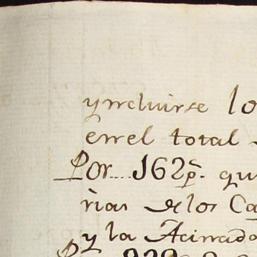 yncluirse lo
en el total
Por.... 162 p.s qu
rias de los Ca
y la Acinado